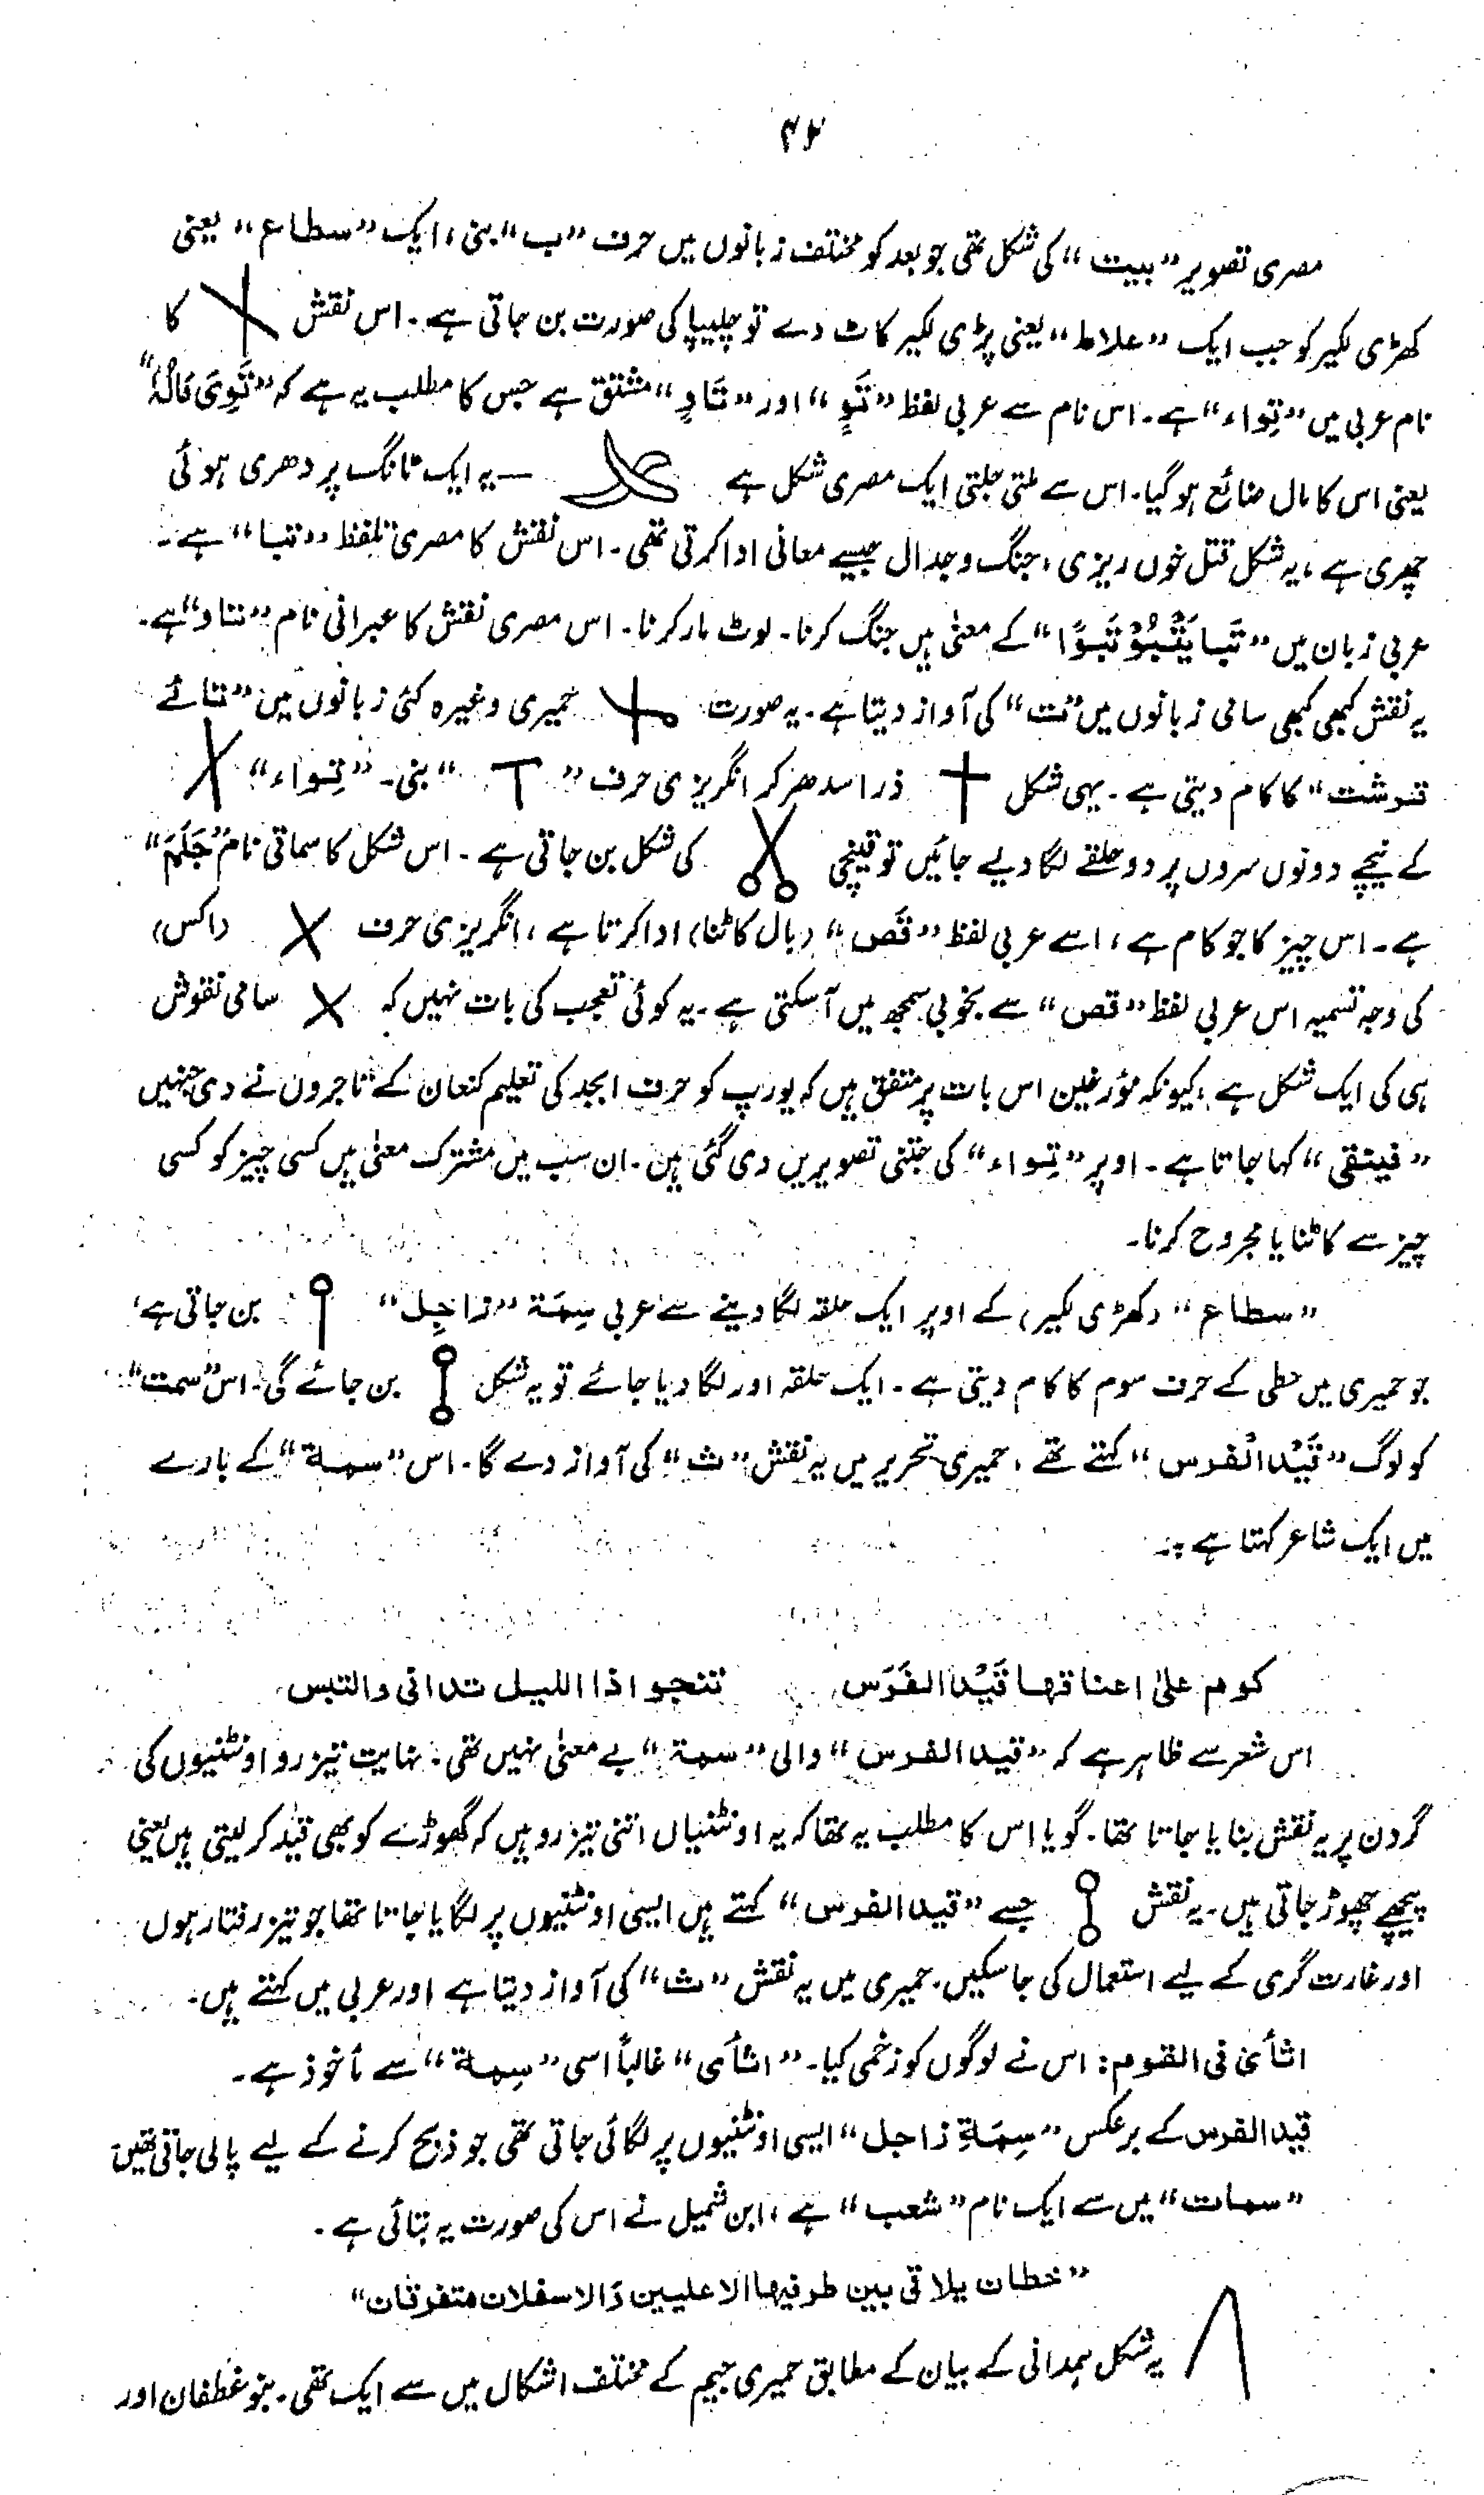 ۴۲
مصری تصویر "بیت" کی شکل تھی جو بعد کو مختلف زبانوں میں حرف "ب" بنی، ایک "سطاع" یعنی
کھڑی لکیر کو جب ایک "علاط" یعنی پڑی لکیر کاٹ دے تو چلیپا کی صورت بن جاتی ہے۔ اس نقش کا
نام عربی میں "تِواء" ہے۔ اس نام سے عربی لفظ "تَوٍ" اور "تَاوٍ" مشتق ہے جس کا مطلب یہ ہے کہ "تَوِیَ مَالُہٗ"
یعنی اس کا مال ضائع ہو گیا۔ اس سے ملتی جلتی ایک مصری شکل ہے — یہ ایک ٹانگ پر دھری ہوئی
چھری ہے، یہ شکل قتل خوں ریزی، جنگ و جدال جیسے معانی ادا کرتی تھی۔ اس نقش کا مصری تلفظ "تبا" ہے۔
عربی زبان میں "تَبا یَتْبُوْ تَبوًا" کے معنیٰ ہیں جنگ کرنا۔ لوٹ مار کرنا۔ اس مصری نقش کا عبرانی نام "تاو" ہے۔
یہ نقش کبھی کبھی سامی زبانوں میں "ت" کی آواز دیتا ہے۔ یہ صورت حمیری وغیرہ کئی زبانوں میں "تائے
قرشت" کا کام دیتی ہے۔ یہی شکل ذرا سدھر کر انگریزی حرف "T" بنی۔ "تِواء" X
کے نیچے دونوں سروں پر دو حلقے لگا دیے جائیں تو قینچی کی شکل بن جاتی ہے۔ اس شکل کا سماتی نام "جَلَم"
ہے۔ اس چیز کا جو کام ہے، اسے عربی لفظ "قَص" (بال کاٹنا) ادا کرتا ہے، انگریزی حرف X (اکس)
کی وجہ تسمیہ اس عربی لفظ "قص" سے بخوبی سمجھ میں آ سکتی ہے۔ یہ کوئی تعجب کی بات نہیں کہ X سامی نقوش
ہی کی ایک شکل ہے، کیونکہ مؤرخین اس بات پر متفق ہیں کہ یورپ کو حرف ابجد کی تعلیم کنعان کے تاجروں نے دی جنہیں
"فینقی" کہا جاتا ہے۔ اوپر "تِواء" کی جتنی تصویریں دی گئی ہیں۔ ان سب میں مشترک معنیٰ ہیں کسی چیز کو کسی
چیز سے کاٹنا یا مجروح کرنا۔
"سطاع" (کھڑی لکیر) کے اوپر ایک حلقہ لگا دینے سے عربی سِمَۃ "زاجِل" بن جاتی ہے،
جو حمیری میں حطی کے حرف سوم کا کام دیتی ہے۔ ایک حلقہ اور لگا دیا جائے تو یہ شکل بن جائے گی۔ اس "سمت"
کو لوگ "قَیْدالْفرس" کہتے تھے، حمیری تحریر میں یہ نقش "ث" کی آواز دے گا۔ اس "سمۃ" کے بارے
میں ایک شاعر کہتا ہے:۔
کوم علیٰ اعناقھا قَیْدالفَرَس تنجو اذا اللیل تدانی والتبس
اس شعر سے ظاہر ہے کہ "قیدالفرس" والی "سمۃ" بے معنیٰ نہیں تھی۔ نہایت تیز رو اونٹنیوں کی
گردن پر یہ نقش بنایا جاتا تھا۔ گویا اس کا مطلب یہ تھا کہ یہ اونٹنیاں اتنی تیز رو ہیں کہ گھوڑے کو بھی قید کر لیتی ہیں یعنی
پیچھے چھوڑ جاتی ہیں۔ یہ نقش جسے "قیدالفرس" کہتے ہیں ایسی اونٹنیوں پر لگایا جاتا تھا جو تیز رفتار ہوں
اور غارت گری کے لیے استعمال کی جا سکیں۔ حمیری میں یہ نقش "ث" کی آواز دیتا ہے اور عربی میں کہتے ہیں۔
اثأی فی القوم: اس نے لوگوں کو زخمی کیا۔ "اثأی" غالباً اسی "سِمۃ" سے مأخوذ ہے۔
قیدالفرس کے برعکس "سِمَۃِ زاجل" ایسی اونٹنیوں پر لگائی جاتی تھی جو ذبح کرنے کے لیے پالی جاتی تھیں
"سمات" میں سے ایک نام "شعب" ہے، ابن شمیل نے اس کی صورت یہ بتائی ہے۔
"خطان یلاقی بین طرفیھا الاعلیین وَالاسفلان متفرقان"
یہ شکل ہمدانی کے بیان کے مطابق حمیری جیم کے مختلف اشکال میں سے ایک تھی۔ بنو غطفان اور